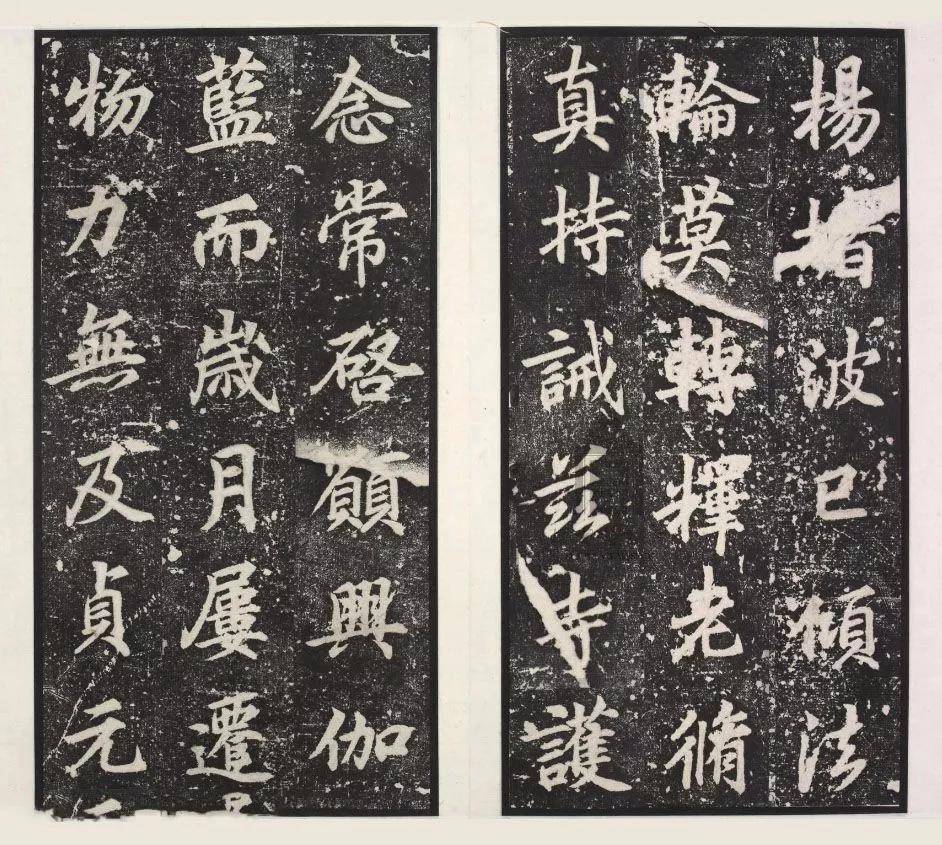 楊者波已傾法
輪莫轉釋老脩
真持誡茲寺護
念常啓願興伽
藍而歲月屢遷
物力無及貞元